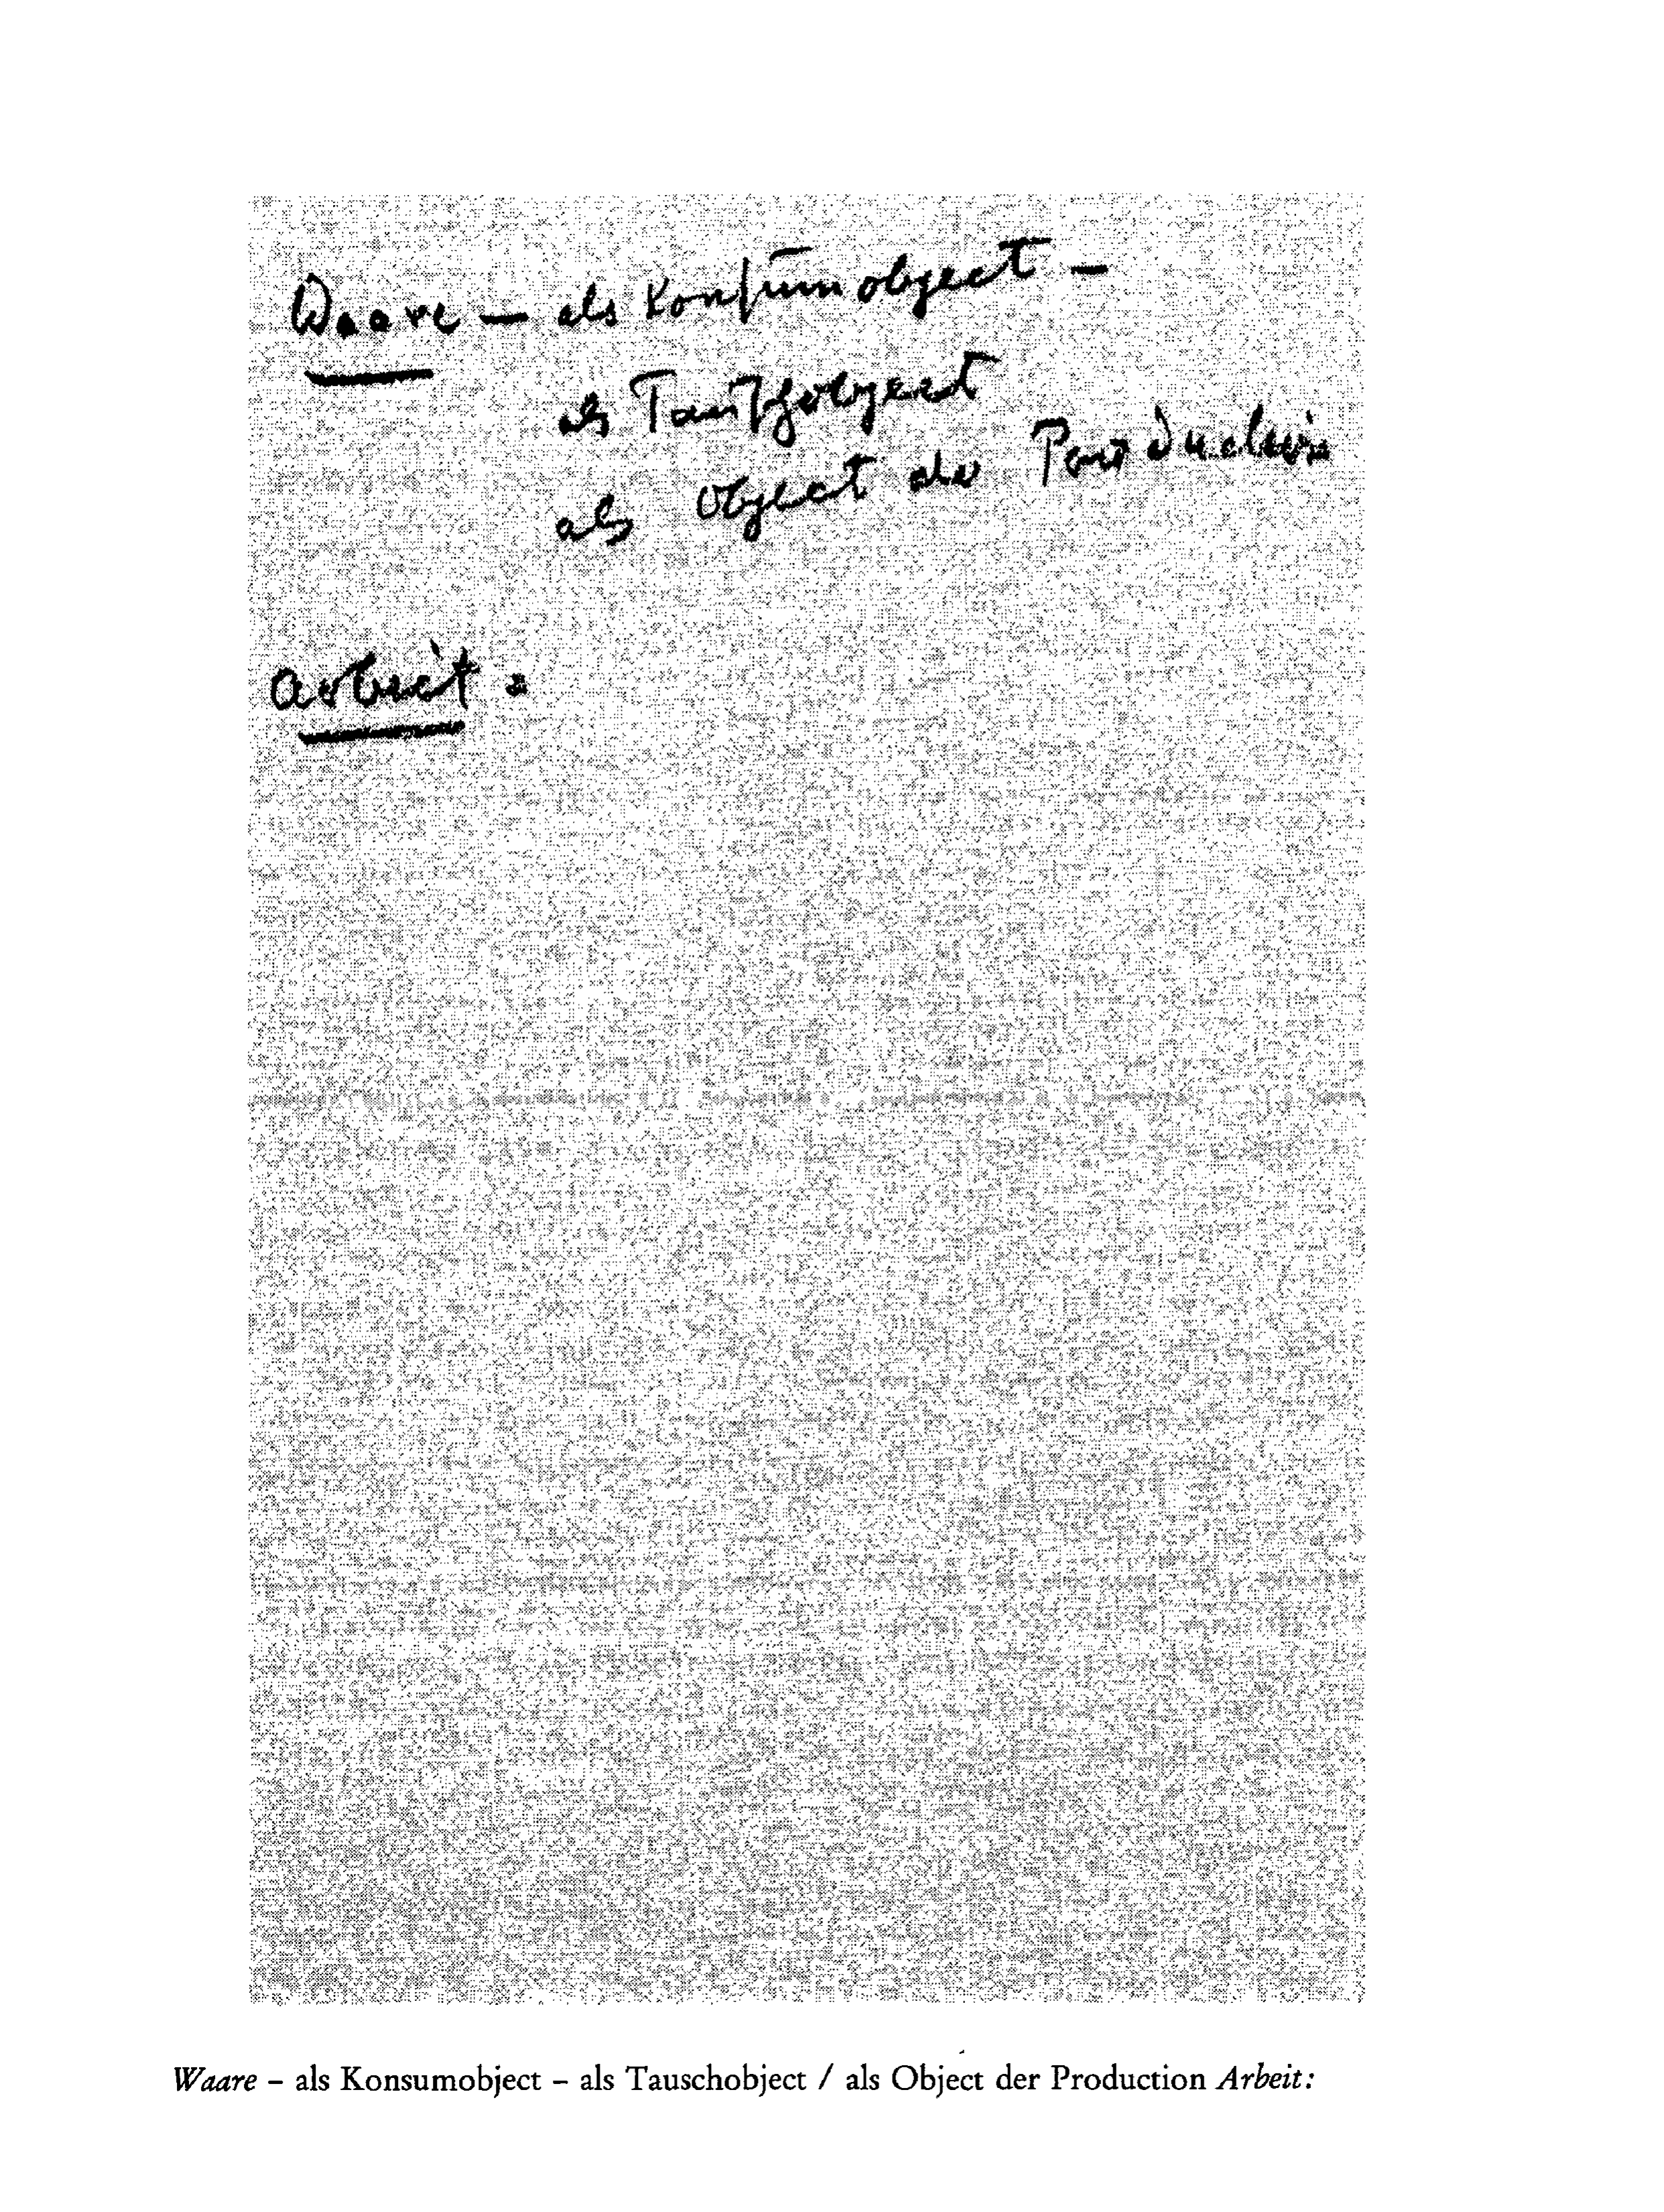 Waare — als Konsumobject —
als Tauschobject
als Object der Production
Arbeit :
Waare – als Konsumobject – als Tauschobject / als Object der Production Arbeit: